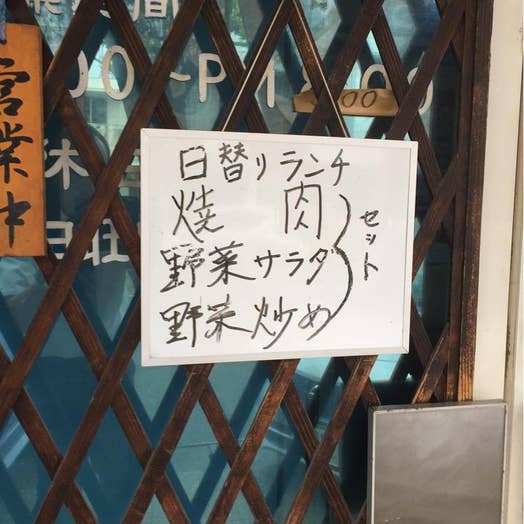 営業中
日替りランチ
焼 肉
野菜サラダ
野菜炒め
セット